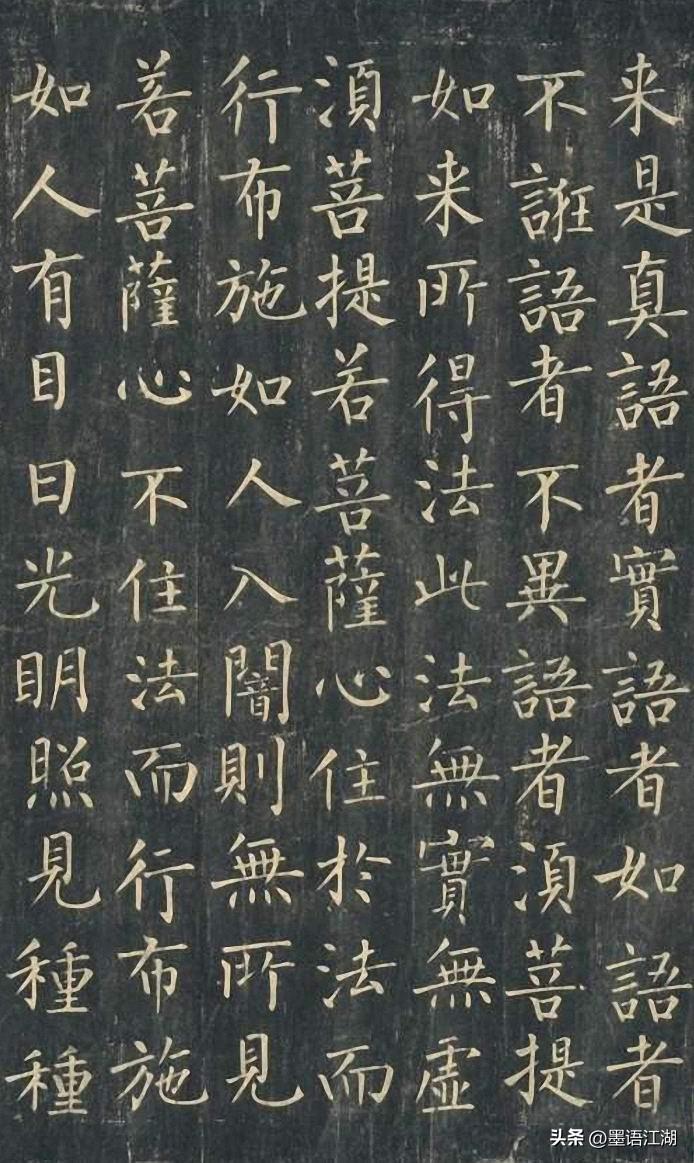 来是真語者實語者如語者
不誑語者不異語者湏菩提
如来所得法此法無實無虛
湏菩提若菩薩心住於法而
行布施如人入闇則無所見
若菩薩心不住法而行布施
如人有目日光明照見種種
头条 @墨语江湖